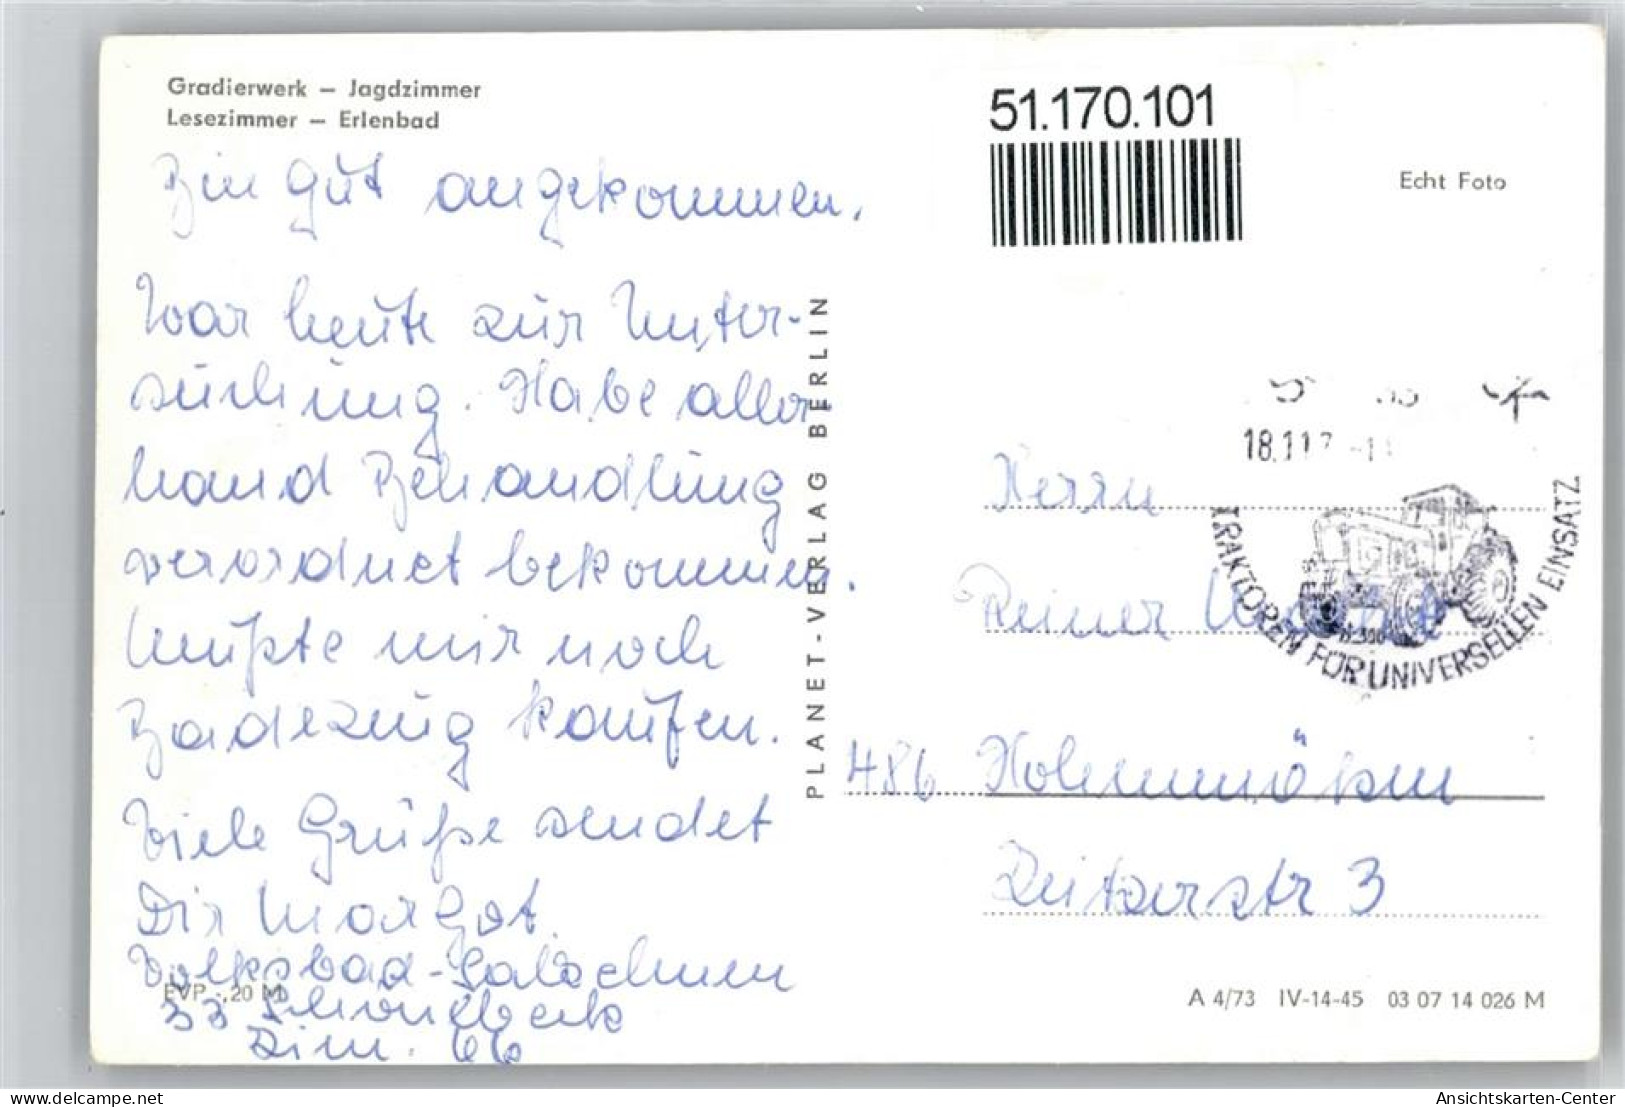 Gradierwerk – Jagdzimmer
Lesezimmer – Erlenbad
Bin gut angekommen.
War heute zur Unter-
suchung. Habe aller-
hand Behandlung
verordnet bekommen.
Mußte mir noch
Badezeug kaufen.
Viele Grüße sendet
Dir Margot.
Volksbad-Salzelmen
33 Schönebeck
Zim. 66
EVP -,20 M
PLANET-VERLAG BERLIN
51.170.101
Echt Foto
18.11.7
TRAKTOREN FÜR UNIVERSELLEN EINSATZ
Herrn
Reiner
486 Hohenmölsen
Zeitzerstr 3
A 4/73 IV-14-45 03 07 14 026 M
www.delcampe.net
Ansichtskarten-Center